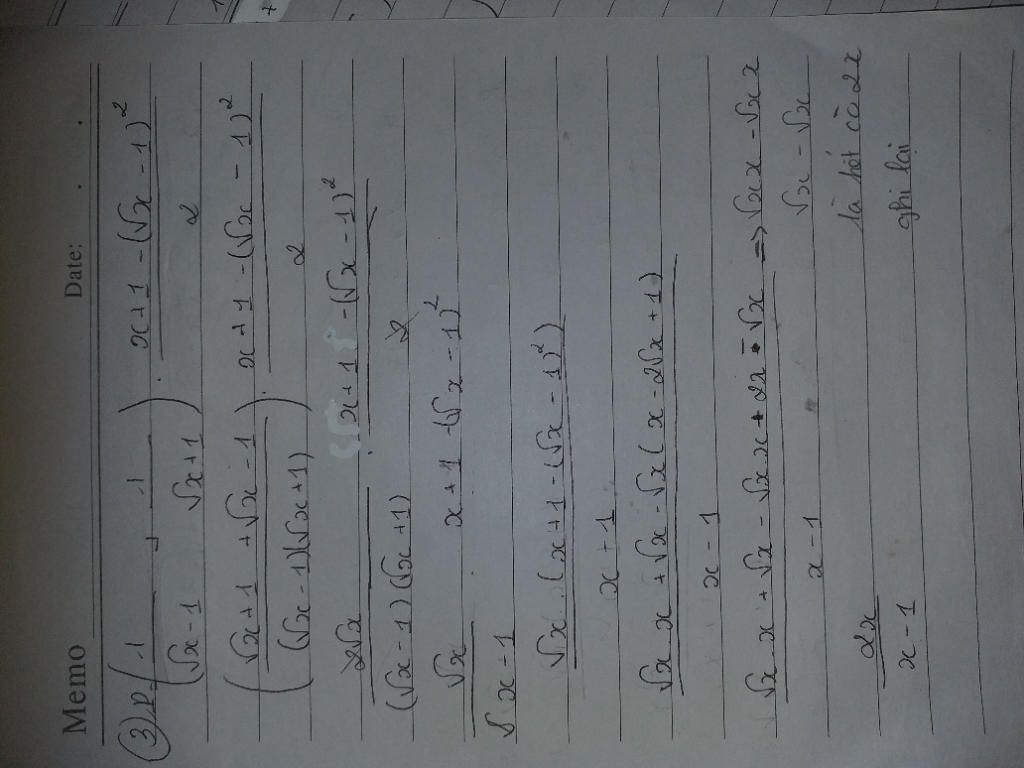 Memo
Date: . .
③ P ( 1/(√x - 1) + 1/(√x + 1) ) . (x + 1 - (√x - 1)²)/2
( (√x + 1 + √x - 1)/((√x - 1)(√x + 1)) ) . (x + 1 - (√x - 1)²)/2
2√x/((√x - 1)(√x + 1)) . (x + 1 - (√x - 1)²)/2
√x/(x - 1) . x + 1 - (√x - 1)²
√x . (x + 1 - (√x - 1)²)/(x + 1)
(√x . x + √x - √x (x - 2√x + 1))/(x - 1)
(√x . x + √x - √x x + 2x - √x)/(x - 1) => √x x - √x x
√x - √x
là hết còn 2x
2x/(x - 1) ghi lại